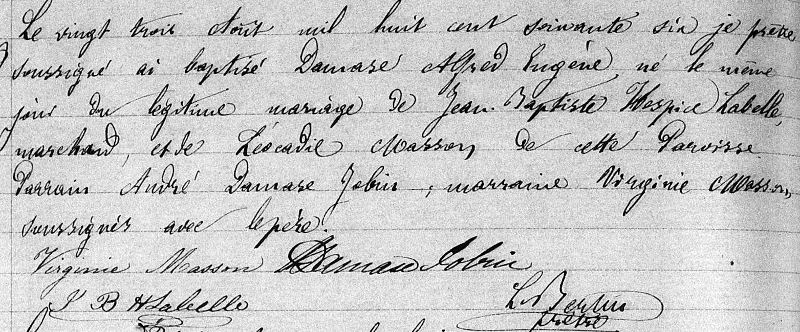 Le vingt trois Août mil huit cent soixante six je prêtre
soussigné ai baptisé Damase Alfred Eugène, né le même
jour du légitime mariage de Jean-Baptiste Hospice Labelle,
marchand, et de Léocadie Masson, de cette Paroisse
Parrain André Damase Jobin, marraine Virginie Masson,
soussignés avec le père.
Virginie Masson Damase Jobin
J B H Labelle
prêtre